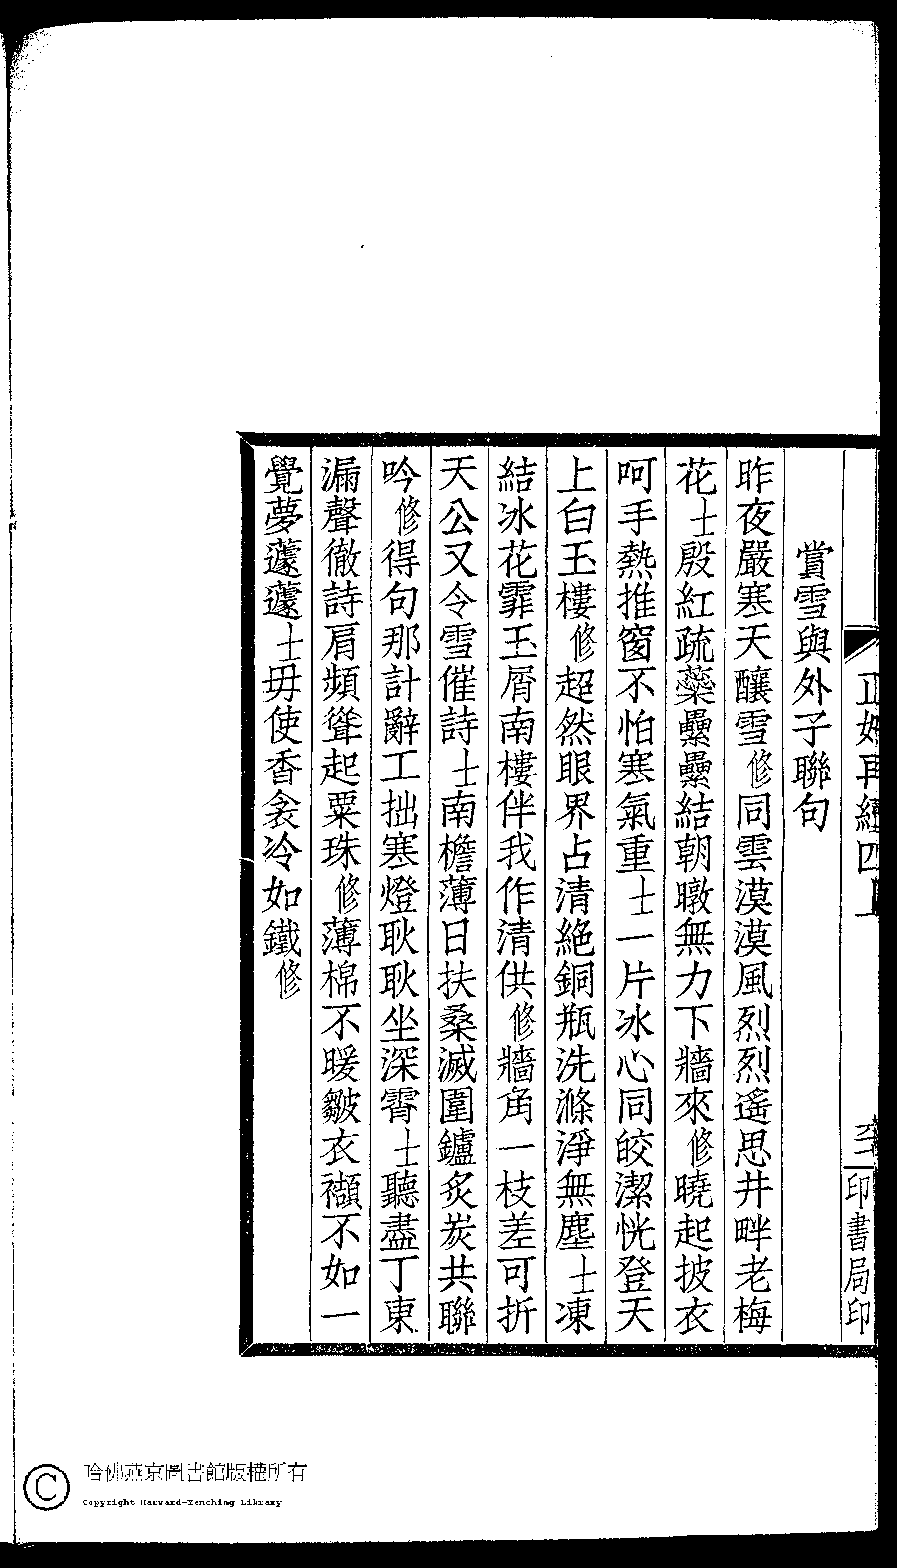 賞雪與外子聯句
昨夜嚴寒天釀雪修同雲漠漠風烈烈遙思井畔老梅
花士殷紅疏蘂纍纍結朝暾無力下牆來修曉起披衣
呵手熱推窗不怕寒氣重士一片冰心同皎潔恍登天
上白玉樓修超然眼界占清絕銅瓶洗滌淨無塵士凍
結冰花霏玉屑南樓伴我作清供修牆角一枝差可折
天公又令雪催詩士南檐薄日扶桑滅圍鑪炙炭共聯
吟修得句那計辭工拙寒燈耿耿坐深霄士聽盡丁東
漏聲徹詩肩頻聳起粟珠修薄棉不暖皺衣襭不如一
覺夢蘧蘧士毋使香衾冷如鐵修
印書局印
哈佛燕京圖書館版權所有
Copyright Harvard-Yenching Library